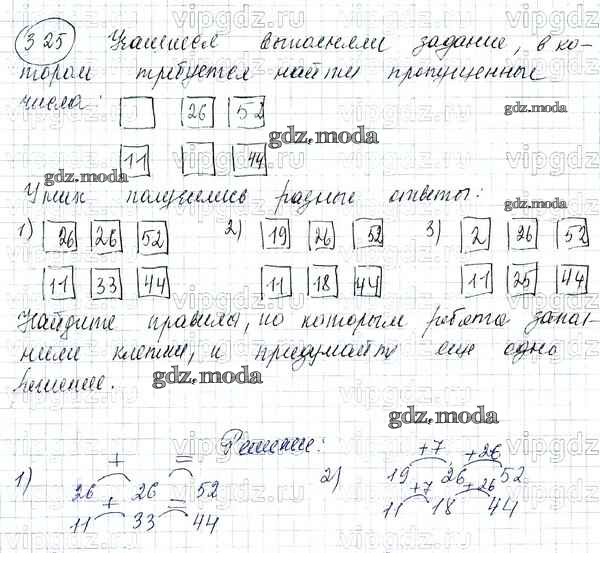 325 Учащиеся выполняли задание, в ко-
тором требуется найти пропущенные
числа: 26 52
11 44
У них получились разные ответы:
1) 26 26 52 2) 19 26 52 3) 2 26 52
11 33 44 11 18 44 11 25 44
Найдите правила, по которым ребята запол-
нили клетки, и придумайте еще одно
решение.
Решение:
+ = +7 +26
1) 26 26 52 2) 19 26 52
+ = +7 +26
11 33 44 11 18 44
gdz.moda
gdz.moda
gdz.moda
gdz.moda
gdz.moda
gdz.moda
vipgdz.ru